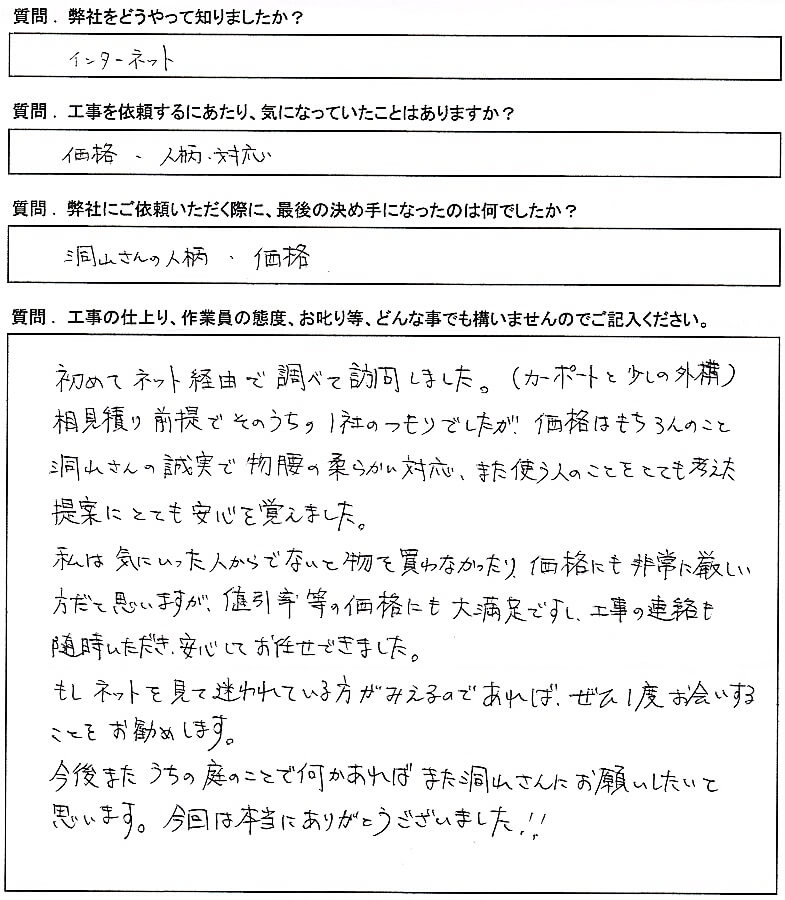 質問．弊社をどうやって知りましたか？
インターネット
質問．工事を依頼するにあたり、気になっていたことはありますか？
価格、人柄、対応
質問．弊社にご依頼いただく際に、最後の決め手になったのは何でしたか？
洞山さんの人柄、価格
質問．工事の仕上り、作業員の態度、お叱り等、どんな事でも構いませんのでご記入ください。
初めてネット経由で調べて訪問しました。（カーポートと少しの外構）
相見積り前提でそのうちの1社のつもりでしたが、価格はもちろんのこと
洞山さんの誠実で物腰の柔らかい対応、また使う人のことをとても考えた
提案にとても安心を覚えました。
私は気にいった人からでないと物を買わなかったり、価格にも非常に厳しい
方だと思いますが、値引率等の価格にも大満足ですし、工事の連絡も
随時いただき、安心してお任せできました。
もしネットを見て迷われている方がみえるのであれば、ぜひ1度お会いする
ことをお勧めします。
今後またうちの庭のことで何かあればまた洞山さんにお願いしたいと
思います。今回は本当にありがとうございました!!